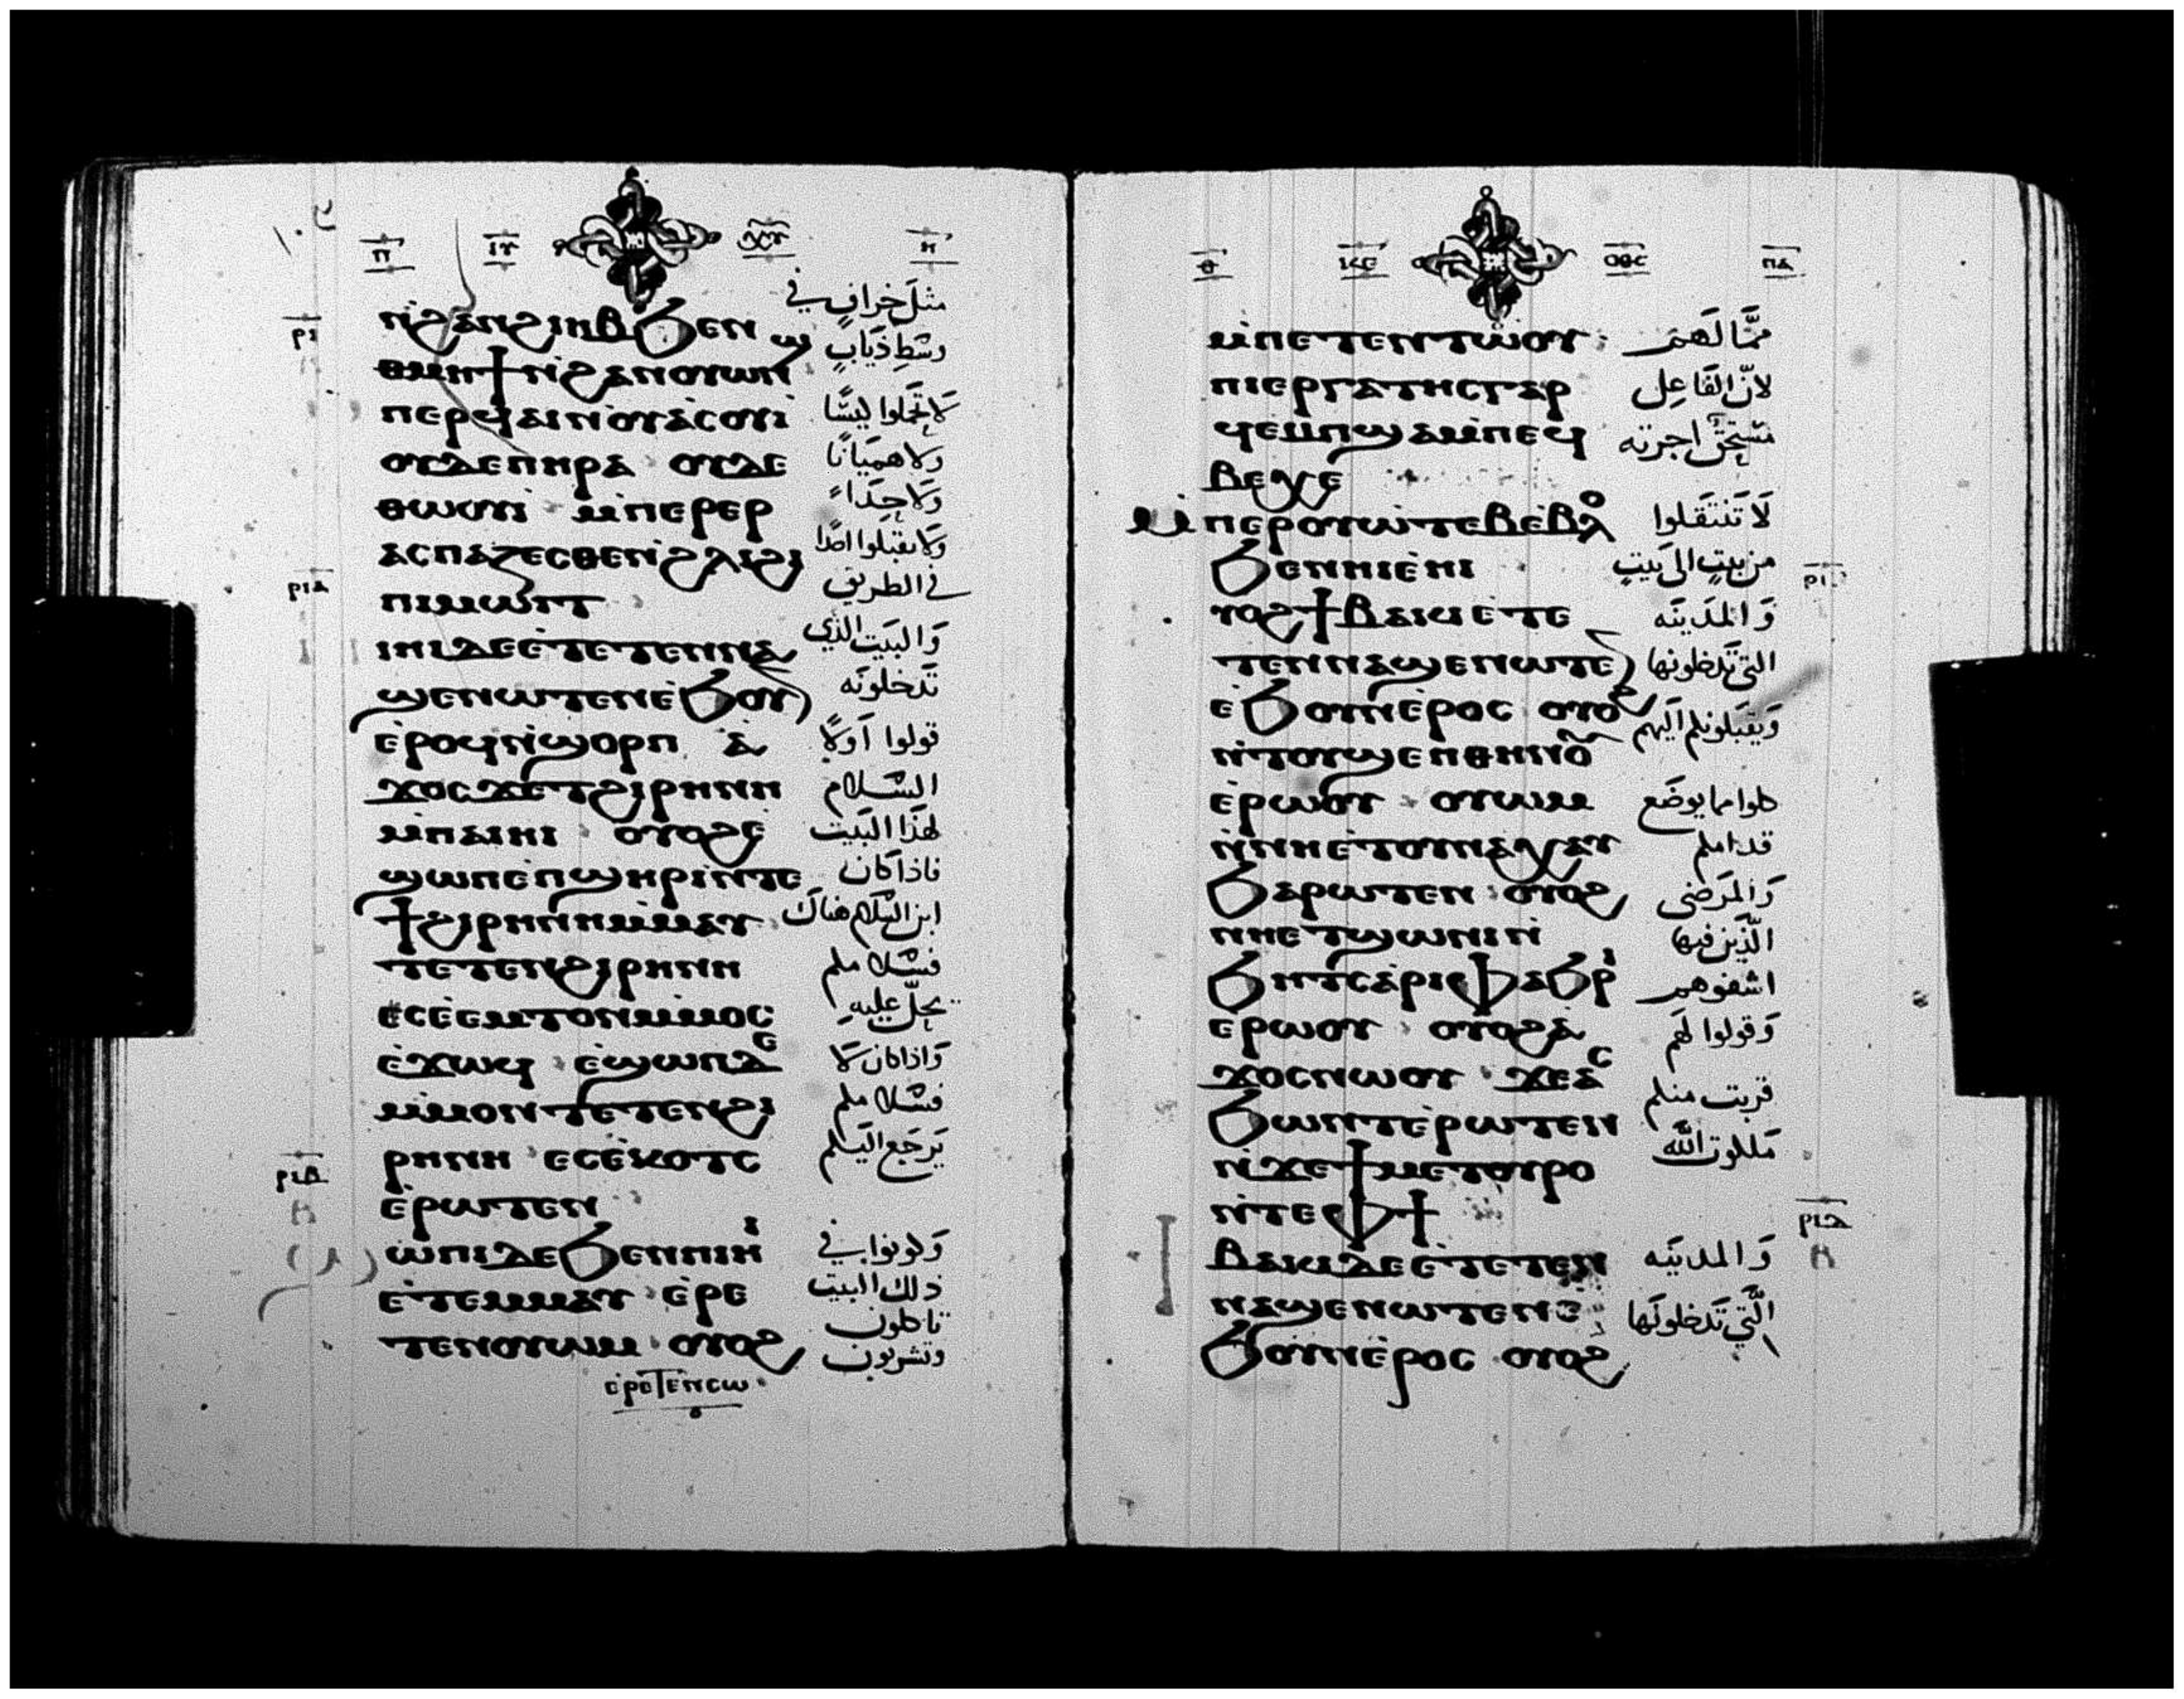 ⲡ ⲓⲩ ⲭⲥ ⲏ
ⲛ̀ϩⲁⲛϩⲓⲏⲃϧⲉⲛ
ⲑⲙⲏϯⲛ̀ϩⲁⲛⲟⲩⲱⲛϣ
ⲡⲉⲣϥⲁⲓⲛ̀ⲟⲩⲁ̀ⲥⲟⲩⲓ̀
ⲟⲩⲇⲉⲡⲏⲣⲁ ⲟⲩⲇⲉ
ⲑⲱⲟⲩⲓ̀ ⲙ̀ⲡⲉⲣⲉⲣ
ⲁⲥⲡⲁⲍⲉⲥⲑⲉⲛ̀ϩⲗⲓϩⲓ
ⲡⲓⲙⲱⲓⲧ
ⲓⲏⲓⲇⲉⲉ̀ⲧⲉⲧⲉⲛⲛⲁ
ϣⲉⲛⲱⲧⲉⲛⲉ̀ϧⲟⲩ
ⲉ̀ⲣⲟϥⲛ̀ϣⲟⲣⲡ ⲁ̀
ϫⲟⲥϫⲉⲧϩⲓⲣⲏⲛⲏ
ⲙ̀ⲡⲁⲓⲏⲓ ⲟⲩⲟϩⲉ̀
ϣⲱⲡⲉ̀ⲡϣⲏⲣⲓⲛ̀ⲧⲉ
ϯϩⲓⲣⲏⲛⲏⲙ̀ⲙⲁⲩ
ⲧⲉⲧⲉⲛϩⲓⲣⲏⲛⲏ
ⲉⲥⲉ̀ⲉⲙⲧⲟⲛⲙ̀ⲙⲟⲥ
ⲉ̀ϫⲱϥ ⲉ̀ϣⲱⲡⲇⲉ
ⲙ̀ⲙⲟⲛⲧⲉⲧⲉⲛϩⲓ
ⲣⲏⲛⲏ ⲉⲥⲉ̀ⲕⲟⲧⲥ
ⲉ̀ⲣⲱⲧⲉⲛ
ⲱ̀ⲡⲓⲇⲉϧⲉⲛⲡⲓⲏⲓ̀
ⲉ̀ⲧⲉⲙⲙⲁⲩ ⲉ̀ⲣⲉ
ⲧⲉⲛⲟⲩⲱⲙ ⲟⲩⲟϩ
ⲉⲣⲉⲧⲉⲛⲥⲱ
مثل خراف في
وسط ذياب
لا تحملوا ليسًا
ولا هميانًا
ولا حذاء
ولا تقبلوا احدًا
في الطريق
والبيت الذي
تدخلونه
قولوا اولًا
السلام
لهذا البيت
فاذا كان
ابن السلام هناك
فسلاملم
يحلّ عليه
واذا كان لا
فسلاملم
يرجع اليلم
وكونوا في
ذلك البيت
تاكلون
وتشربون
ⲣⲓ
ⲣⲓⲁ
ⲣⲓⲃ
ⲑ ⲓⲥⲉ ⲟⲑⲥ ⲡⲁ
ⲙ̀ⲡⲉⲧⲉⲛⲧⲱⲟⲩ
ⲡⲓⲉⲣⲅⲁⲧⲏⲥⲅⲁⲣ
ϥⲉⲙⲡϣⲁⲙ̀ⲡⲉϥ
ⲃⲉⲭⲉ
ⲙ̀ⲡⲉⲣⲟⲩⲱ̀ⲧⲉⲃⲉ̀ⲃⲟⲗ
ϧⲉⲛⲏⲓⲉ̀ⲏⲓ
ⲩⲟϩϯⲃⲁⲕⲓⲉ̀ⲧⲉ
ⲧⲉⲛⲛⲁϣⲉⲛⲱⲧⲉ
ⲉ̀ϧⲟⲩⲛⲉ̀ⲣⲟⲥ ⲟⲩⲟϩ
ⲛ̀ⲧⲟⲩϣⲉⲡⲑⲏⲛⲟ
ⲉ̀ⲣⲱⲟⲩ ⲟⲩⲱⲙ
ⲛ̀ⲛⲏⲉ̀ⲧⲟⲩⲛⲁⲭⲁⲩ
ϧⲁⲣⲱⲧⲉⲛ ⲟⲩⲟϩ
ⲛⲏⲉⲧϣⲱⲛⲓⲛ̀
ϧⲏⲧⲥⲁ̀ⲣⲓⲫⲁϧⲣⲓ̀
ⲉⲣⲱⲟⲩ ⲟⲩⲟϩⲁ̀
ϫⲟⲥⲛⲱⲟⲩ ϫⲉⲁⲥ
ϧⲱⲛⲧⲉ̀ⲣⲱⲧⲉⲛ
ⲛ̀ϫⲉϯⲙⲉⲧⲟⲩⲣⲟ
ⲛ̀ⲧⲉⲫϯ
ⲃⲁⲕⲓⲇⲉⲉ̀ⲧⲉⲧⲉⲛ
ⲛⲁϣⲉⲛⲱⲧⲉⲛⲉ̀
ϧⲟⲩⲛⲉ̀ⲣⲟⲥ ⲟⲩⲟϩ
ممّا لهم
لانّ الفاعل
مستحقّ اجرته
لا تنتقلوا
من بيت الى بيت
والمدينه
التي تدخلونها
ويقبلونلم اليهم
كلوا مما يوضع
قداملم
والمرضى
الّذين فيها
اشفوهم
وقولوا لهم
قربت منلم
مللوت الله
والمدينه
الّتي تدخلونها
ⲣⲓⲇ